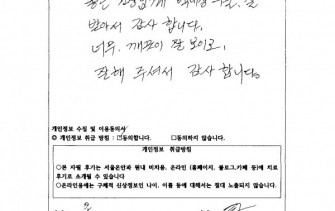 받아서 감사 합니다.
너무. 깨끗이 잘 보이고,
잘해 주셔서 감사 합니다.
개인정보 수집 및 이용동의서
개인정보 취급 방침 : ☑동의합니다. □동의하지 않습니다.
개인정보 취급방침
○본 자필 후기는 서울온안과 원내 비치용, 온라인 (홈페이지, 블로그,카페 등)에 치료
후기로 소개될 수 있습니다
○온라인용에는 구체적 신상정보인 나이, 이름 등에 대해서는 절대 노출되지 않습니다.